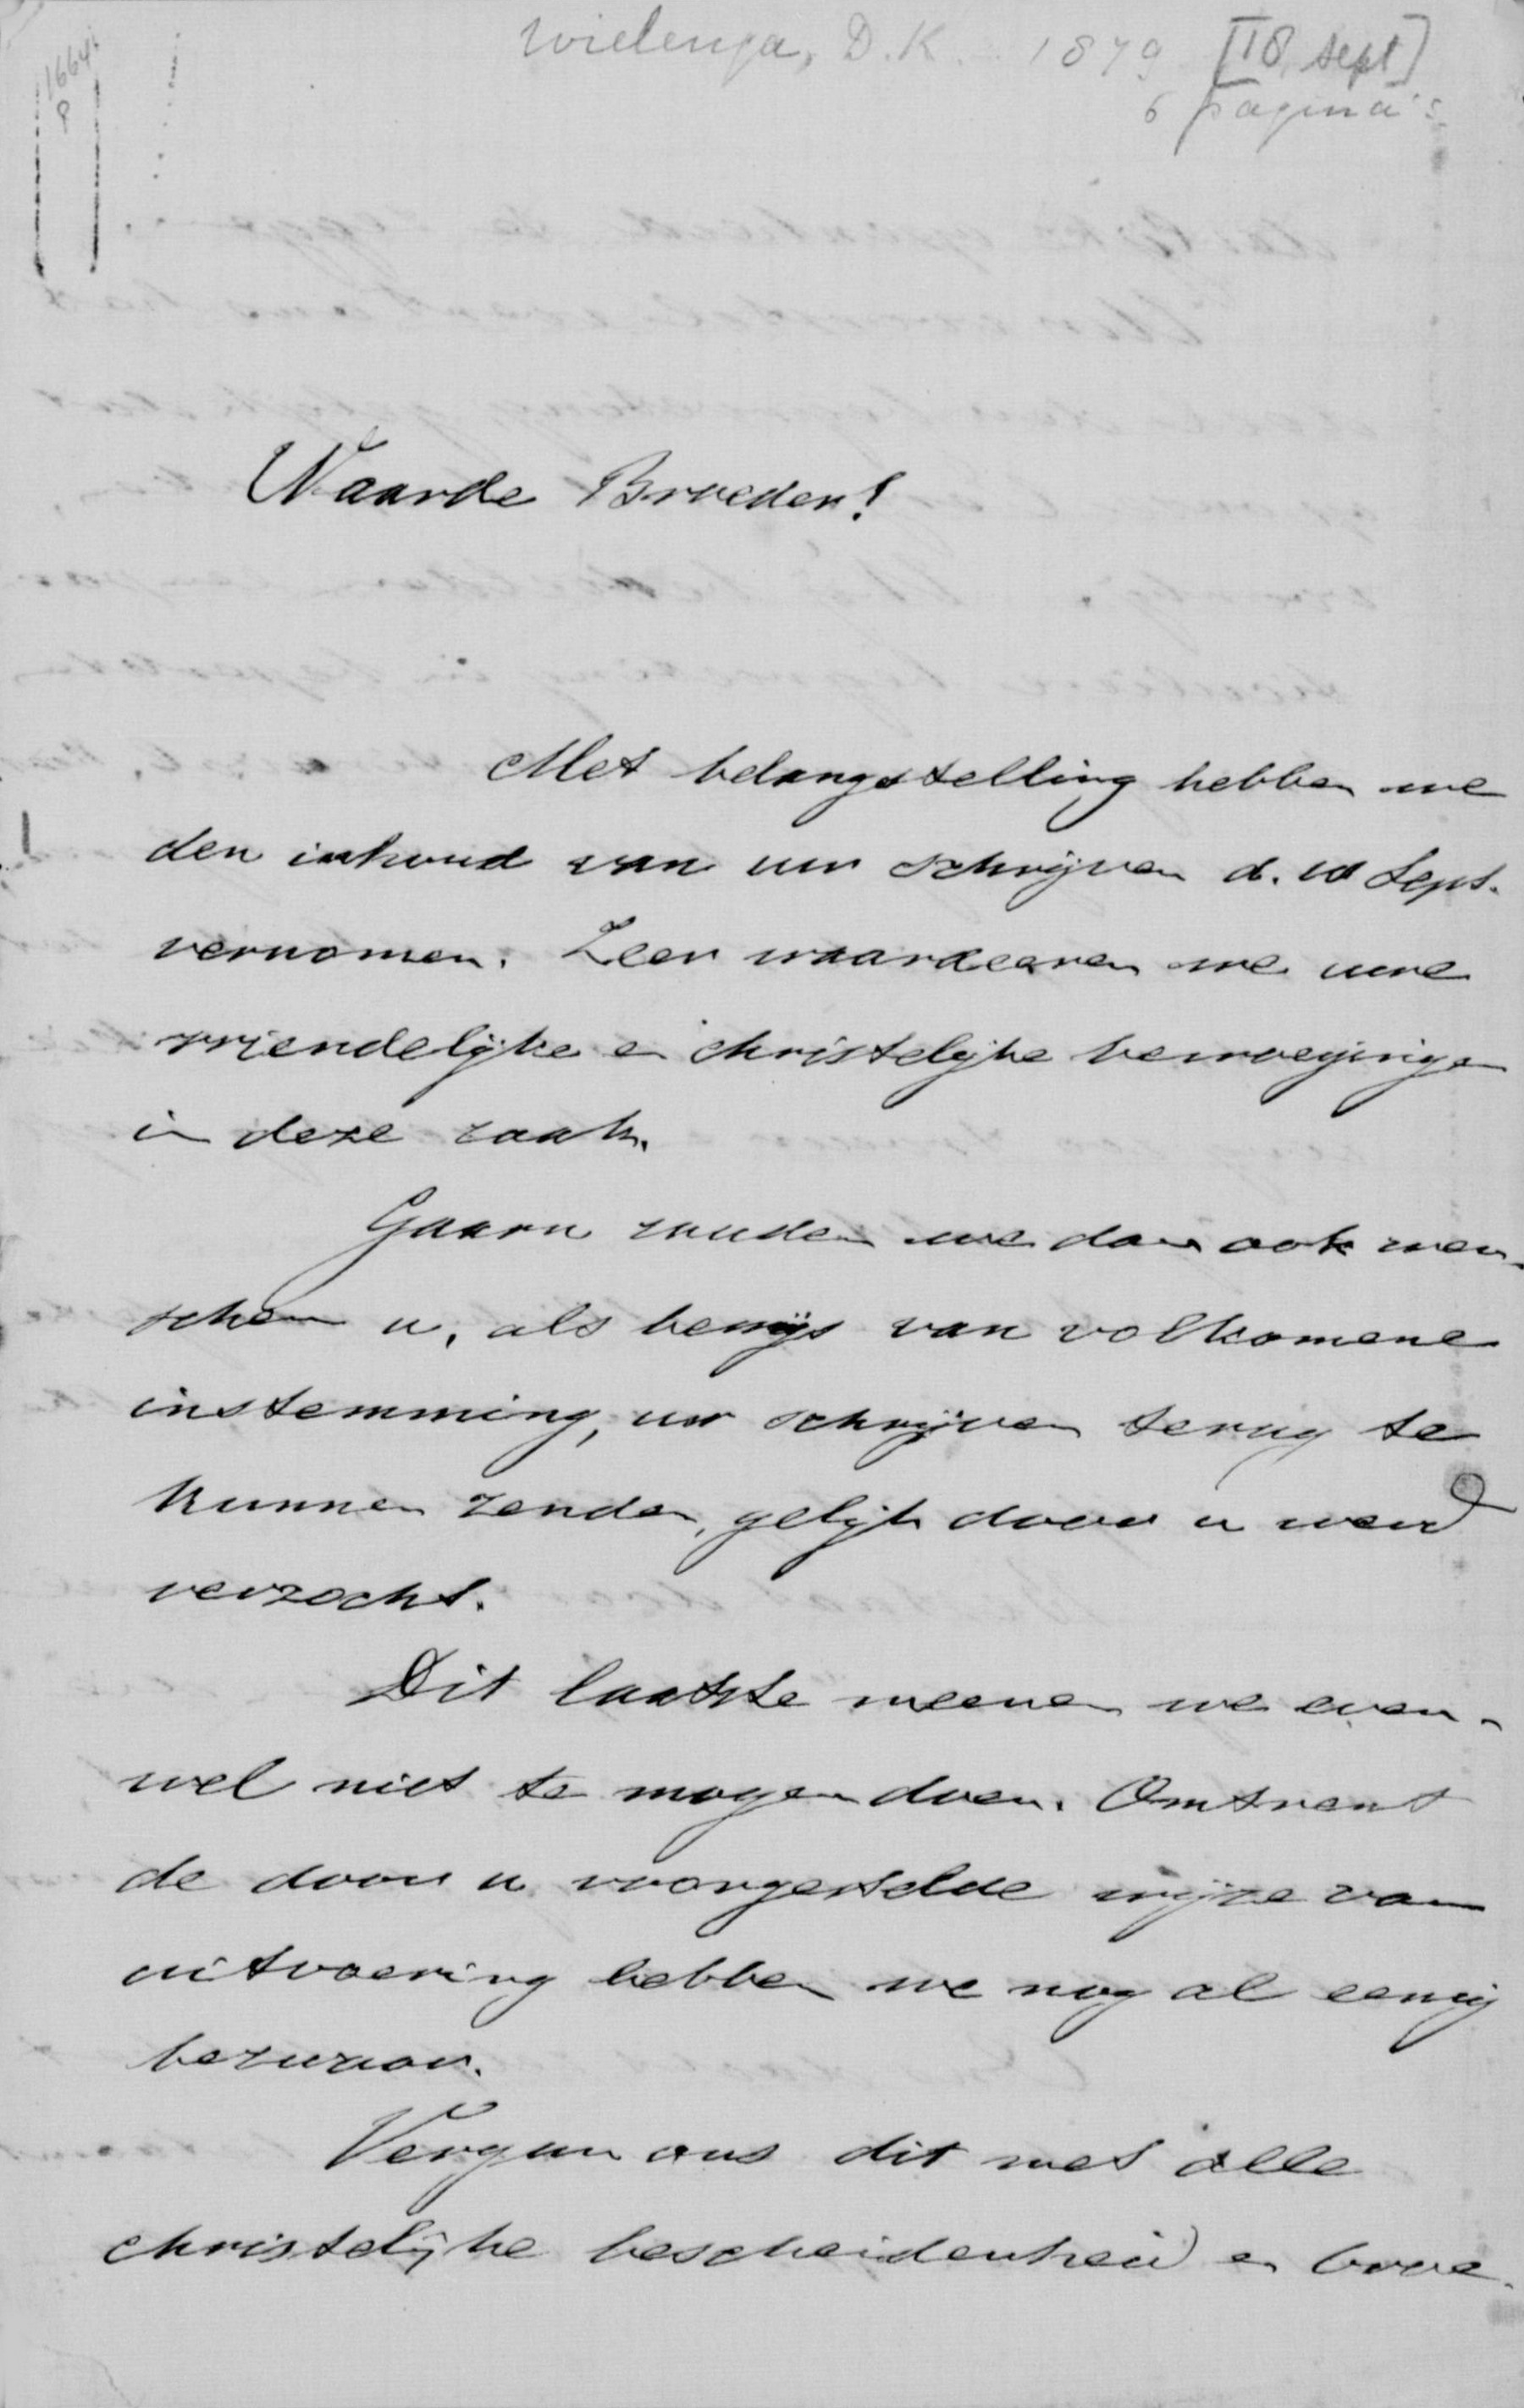 Wielenga, D.K. 1879 [18 sept]
6 pagina's
1664
8
Waarde Broeder!
Met belangstelling hebben we
den inhoud van uw schrijven d. 10 Sept.
vernomen. Zeer waardeeren we uwe
vriendelijke en christelijke bemoeijingen
in deze zaak.
Gaarn zouden we dan ook wen-
schen u, als bewijs van volkomene
instemming, uw schrijven terug te
kunnen zenden, gelijk door u werd
verzocht.
Dit laatste meenen we even-
wel niet te mogen doen. Omtrent
de door u voorgestelde wijze van
uitvoering hebben we nog al eenig
bezwaar.
Vergun ons dit met alle
christelijke bescheidenheid en broe-